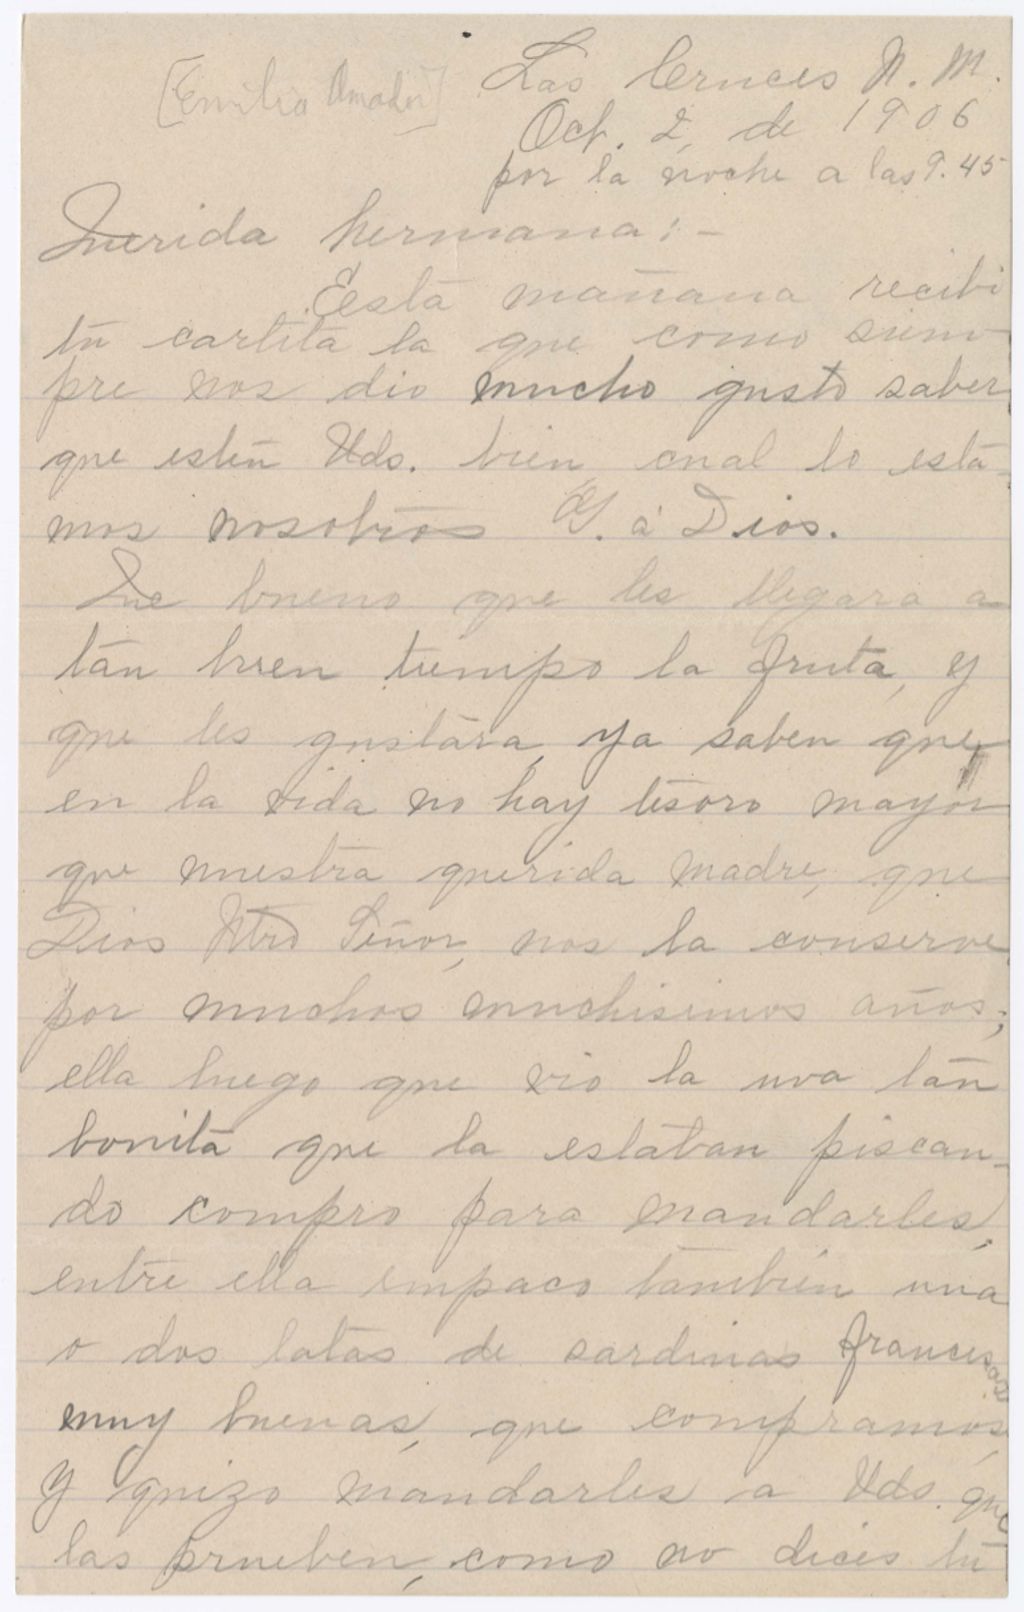 [Emilia Amador]
Las Cruces N. M.
Oct. 2, de 1906
por la noche a las 9.45
Querida hermana:-
Esta mañana recibi
tu cartita la que como siem-
pre nos dio mucho gusto saber
que estén Uds. bien cual lo esta-
mos nosotros G. á Dios.
Que bueno que les llegara a
tan buen tiempo la fruta, y
que les gustara, ya saben que,
en la vida no hay tesoro mayor
que nuestra querida madre, que
Dios Ntro Señor, nos la conserve
por muchos muchisimos años;
ella luego que vio la uva tan
bonita que la estaban piscan-
do compro para mandarles,
entre ella empaco también una
o dos latas de sardinas francesas
muy buenas, que compramos,
y quizo mandarles a Uds. que
las prueben, como no dices tu